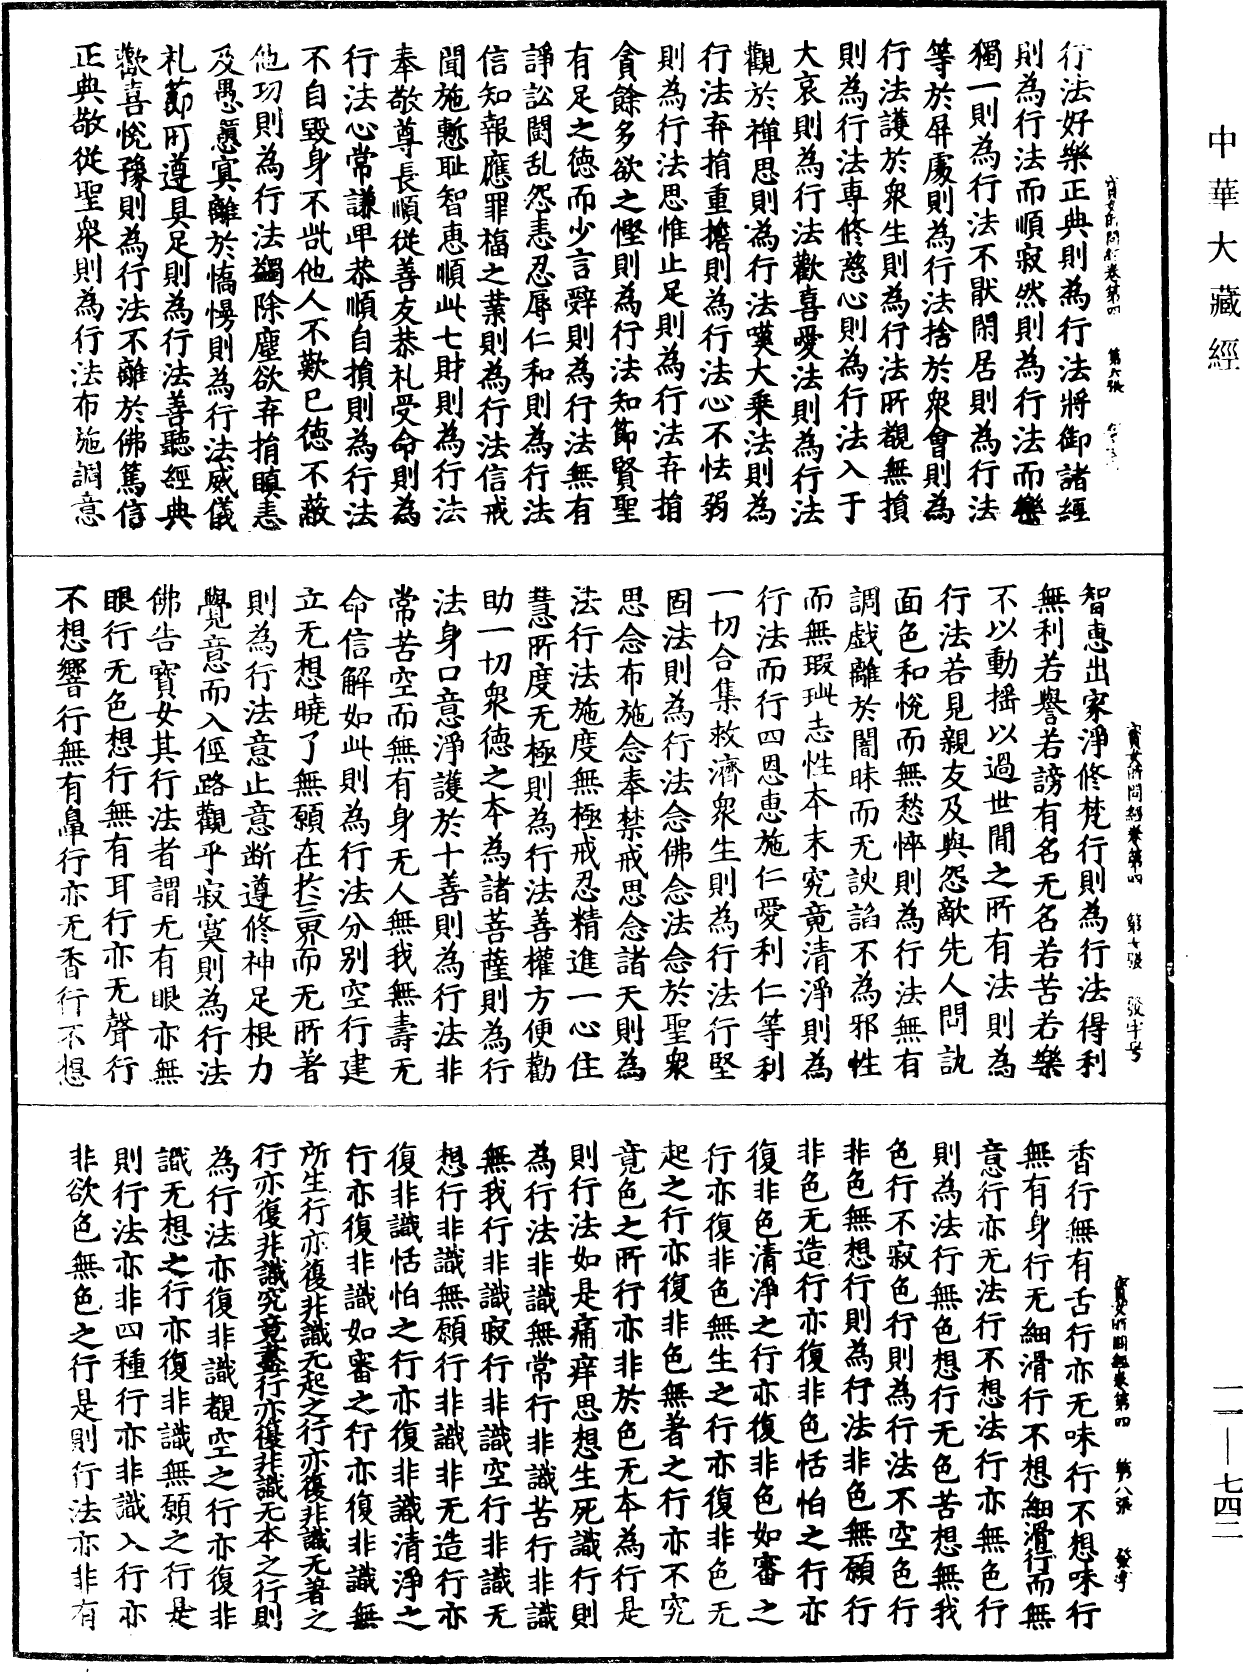 中華大藏經
行法好樂正典則為行法將御諸經
則為行法而順寂然則為行法而樂
獨一則為行法不猒閑居則為行法
等於屏處則為行法捨於衆會則為
行法護於衆生則為行法所覩無損
則為行法專修慈心則為行法入于
大哀則為行法歡喜愛法則為行法
觀於禪思則為行法嘆大乗法則為
行法弃捐重擔則為行法心不怯弱
則為行法思惟止足則為行法弃捐
貪餘多欲之慳則為行法知節賢聖
有足之徳而少言辤則為行法無有
諍訟鬪乱怨恚忍辱仁和則為行法
信知報應罪福之業則為行法信戒
聞施慙耻智惠順此七財則為行法
奉敬尊長順從善友恭礼受命則為
行法心常謙卑恭順自損則為行法
不自毀身不呰他人不歎己徳不蔽
他功則為行法蠲除塵欲弃捐瞋恚
及愚癡冥離於憍慢則為行法威儀
礼節所遵具足則為行法善聽經典
歡喜悅豫則為行法不離於佛篤信
正典敬從聖衆則為行法布施調意
寳女所問經卷第四 第七張 發字号
智惠出家淨修梵行則為行法得利
無利若譽若謗有名无名若苦若樂
不以動揺以過世間之所有法則為
行法若見親友及與怨敵先人問訊
面色和悅而無愁悴則為行法無有
調戯離於闇昧而无諛諂不為邪性
而無瑕玼志性本末究竟清淨則為
行法而行四恩惠施仁愛利仁等利
一切合集救濟衆生則為行法行堅
固法則為行法念佛念法念於聖衆
思念布施念奉禁戒思念諸天則為
法行法施度無極戒忍精進一心住
慧所度无極則為行法善權方便勸
助一切衆徳之本為諸菩薩則為行
法身口意淨護於十善則為行法非
常苦空而無有身无人無我無壽无
命信解如此則為行法分別空行建
立无想曉了無願在於三界而无所著
則為行法意止意断遵修神足根力
覺意而入徑路觀乎寂寞則為行法
佛告寳女其行法者謂无有眼亦無
眼行无色想行無有耳行亦无聲行
不想響行無有鼻行亦无香行不想
寳女所問經卷第四 第八張 發字
香行無有舌行亦无味行不想味行
無有身行无細滑行不想細滑行而無
意行亦无法行不想法行亦無色行
則為法行無色想行无色苦想無我
色行不寂色行則為行法不空色行
非色無想行則為行法非色無願行
非色无造行亦復非色恬怕之行亦
復非色清淨之行亦復非色如審之
行亦復非色無生之行亦復非色无
起之行亦復非色無著之行亦不究
竟色之所行亦非於色无本為行是
則行法如是痛痒思想生死識行則
為行法非識無常行非識苦行非識
無我行非識寂行非識空行非識无
想行非識無願行非識非无造行亦
復非識恬怕之行亦復非識清淨之
行亦復非識如審之行亦復非識無
所生行亦復非識无起之行亦復非識无著之
行亦復非識究竟盡行亦復非識无本之行則
為行法亦復非識覩空之行亦復非
識无想之行亦復非識無願之行是
則行法亦非四種行亦非識入行亦
非欲色無色之行是則行法亦非有
一一—七四二